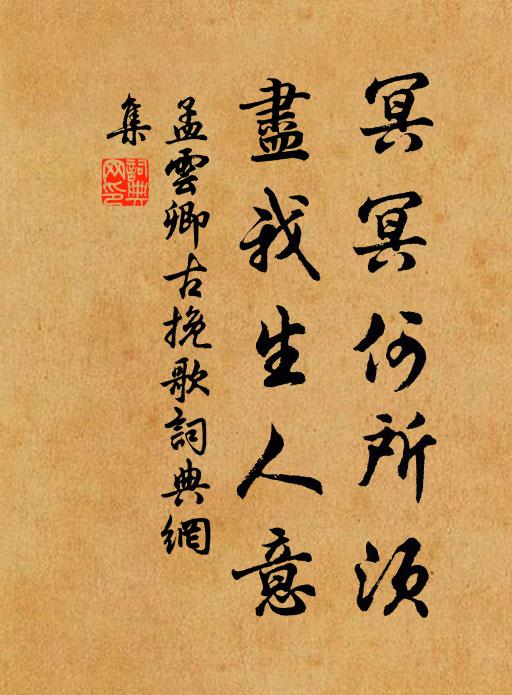 冥冥何所須
盡我生人意
孟雲卿古挽歌詞典網
集
詞典網印